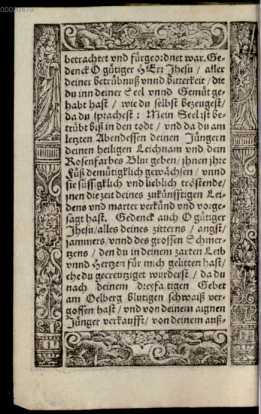 betrachtet vnd fürgeordnet war. Ge-
denck O gütiger HErr Jhesu / aller
deiner betrübnuß vnnd bitterkeit / die
du inn deiner Seel vnnd Gemüt ge-
habt hast / wie du selbst bezeugest /
da du sprachest : Mein Seel ist be-
trübt biß in den todt / vnd da du am
letzten Abendessen deinen Jüngern
deinen heiligen Leichnam vnd dein
Rosenfarbes Blut geben / jhnen jhre
Füß demütigklich gewäschen / vnnd
sie süssigklich vnd lieblich tröstende /
jnen die zeit deines zukünfftigen Lei-
dens vnd marter verkünd vnd vorge-
sagt hast. Gedenck auch O gütiger
Jhesu / alles deines zitterns / angst /
jammers / vnnd des grossen Schmer-
tzens / den du in deinem zarten Leib
vnnd Hertzen für mich gelitten hast /
ehe du gecreutziget wurdest / da du
nach deinem dreyfaltigen Gebet
am Oelberg blutigen schwaiß ver-
gossen hast / vnd von deinem aignen
Jünger verkaufft / von deinem auß-